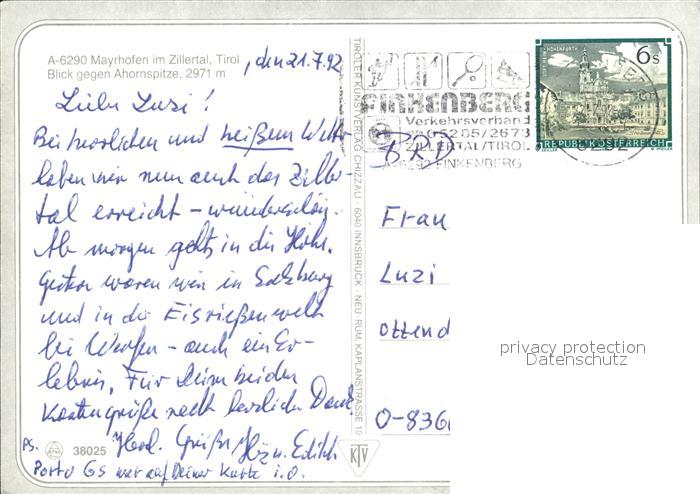 A-6290 Mayrhofen im Zillertal, Tirol
Blick gegen Ahornspitze, 2971 m
, den 21.7.92
Liebe Luzi!
Bei herrlichen und heißem Wetter
haben wir nun auch das Ziller-
tal erreicht - wunderschön.
Ab morgen gehts in die Höhe.
Gestern waren wir in Salzburg
und in der Eisriesenwelt
bei Werfen - auch ein Er-
lebnis. Für Deine beiden
Kartengrüße noch herzlichen Dank.
Herzl. Grüße Edith
PS.
Porto 6s war auf Deiner Karte i.O.
38025
TIROLER KUNSTVERLAG CHIZZALI · 6040 INNSBRUCK · NEU-RUM, KAPLANSTRASSE 10
KTV
FINKENBERG
Verkehrsverband
05285/2673
ZILLERTAL/TIROL
A-6292 FINKENBERG
BRD
HOHENFURTH
6s
REPUBLIK ÖSTERREICH
ZEILLER
W. PFEILER
Frau
Luzi
Ottend
O-836
privacy protection
Datenschutz